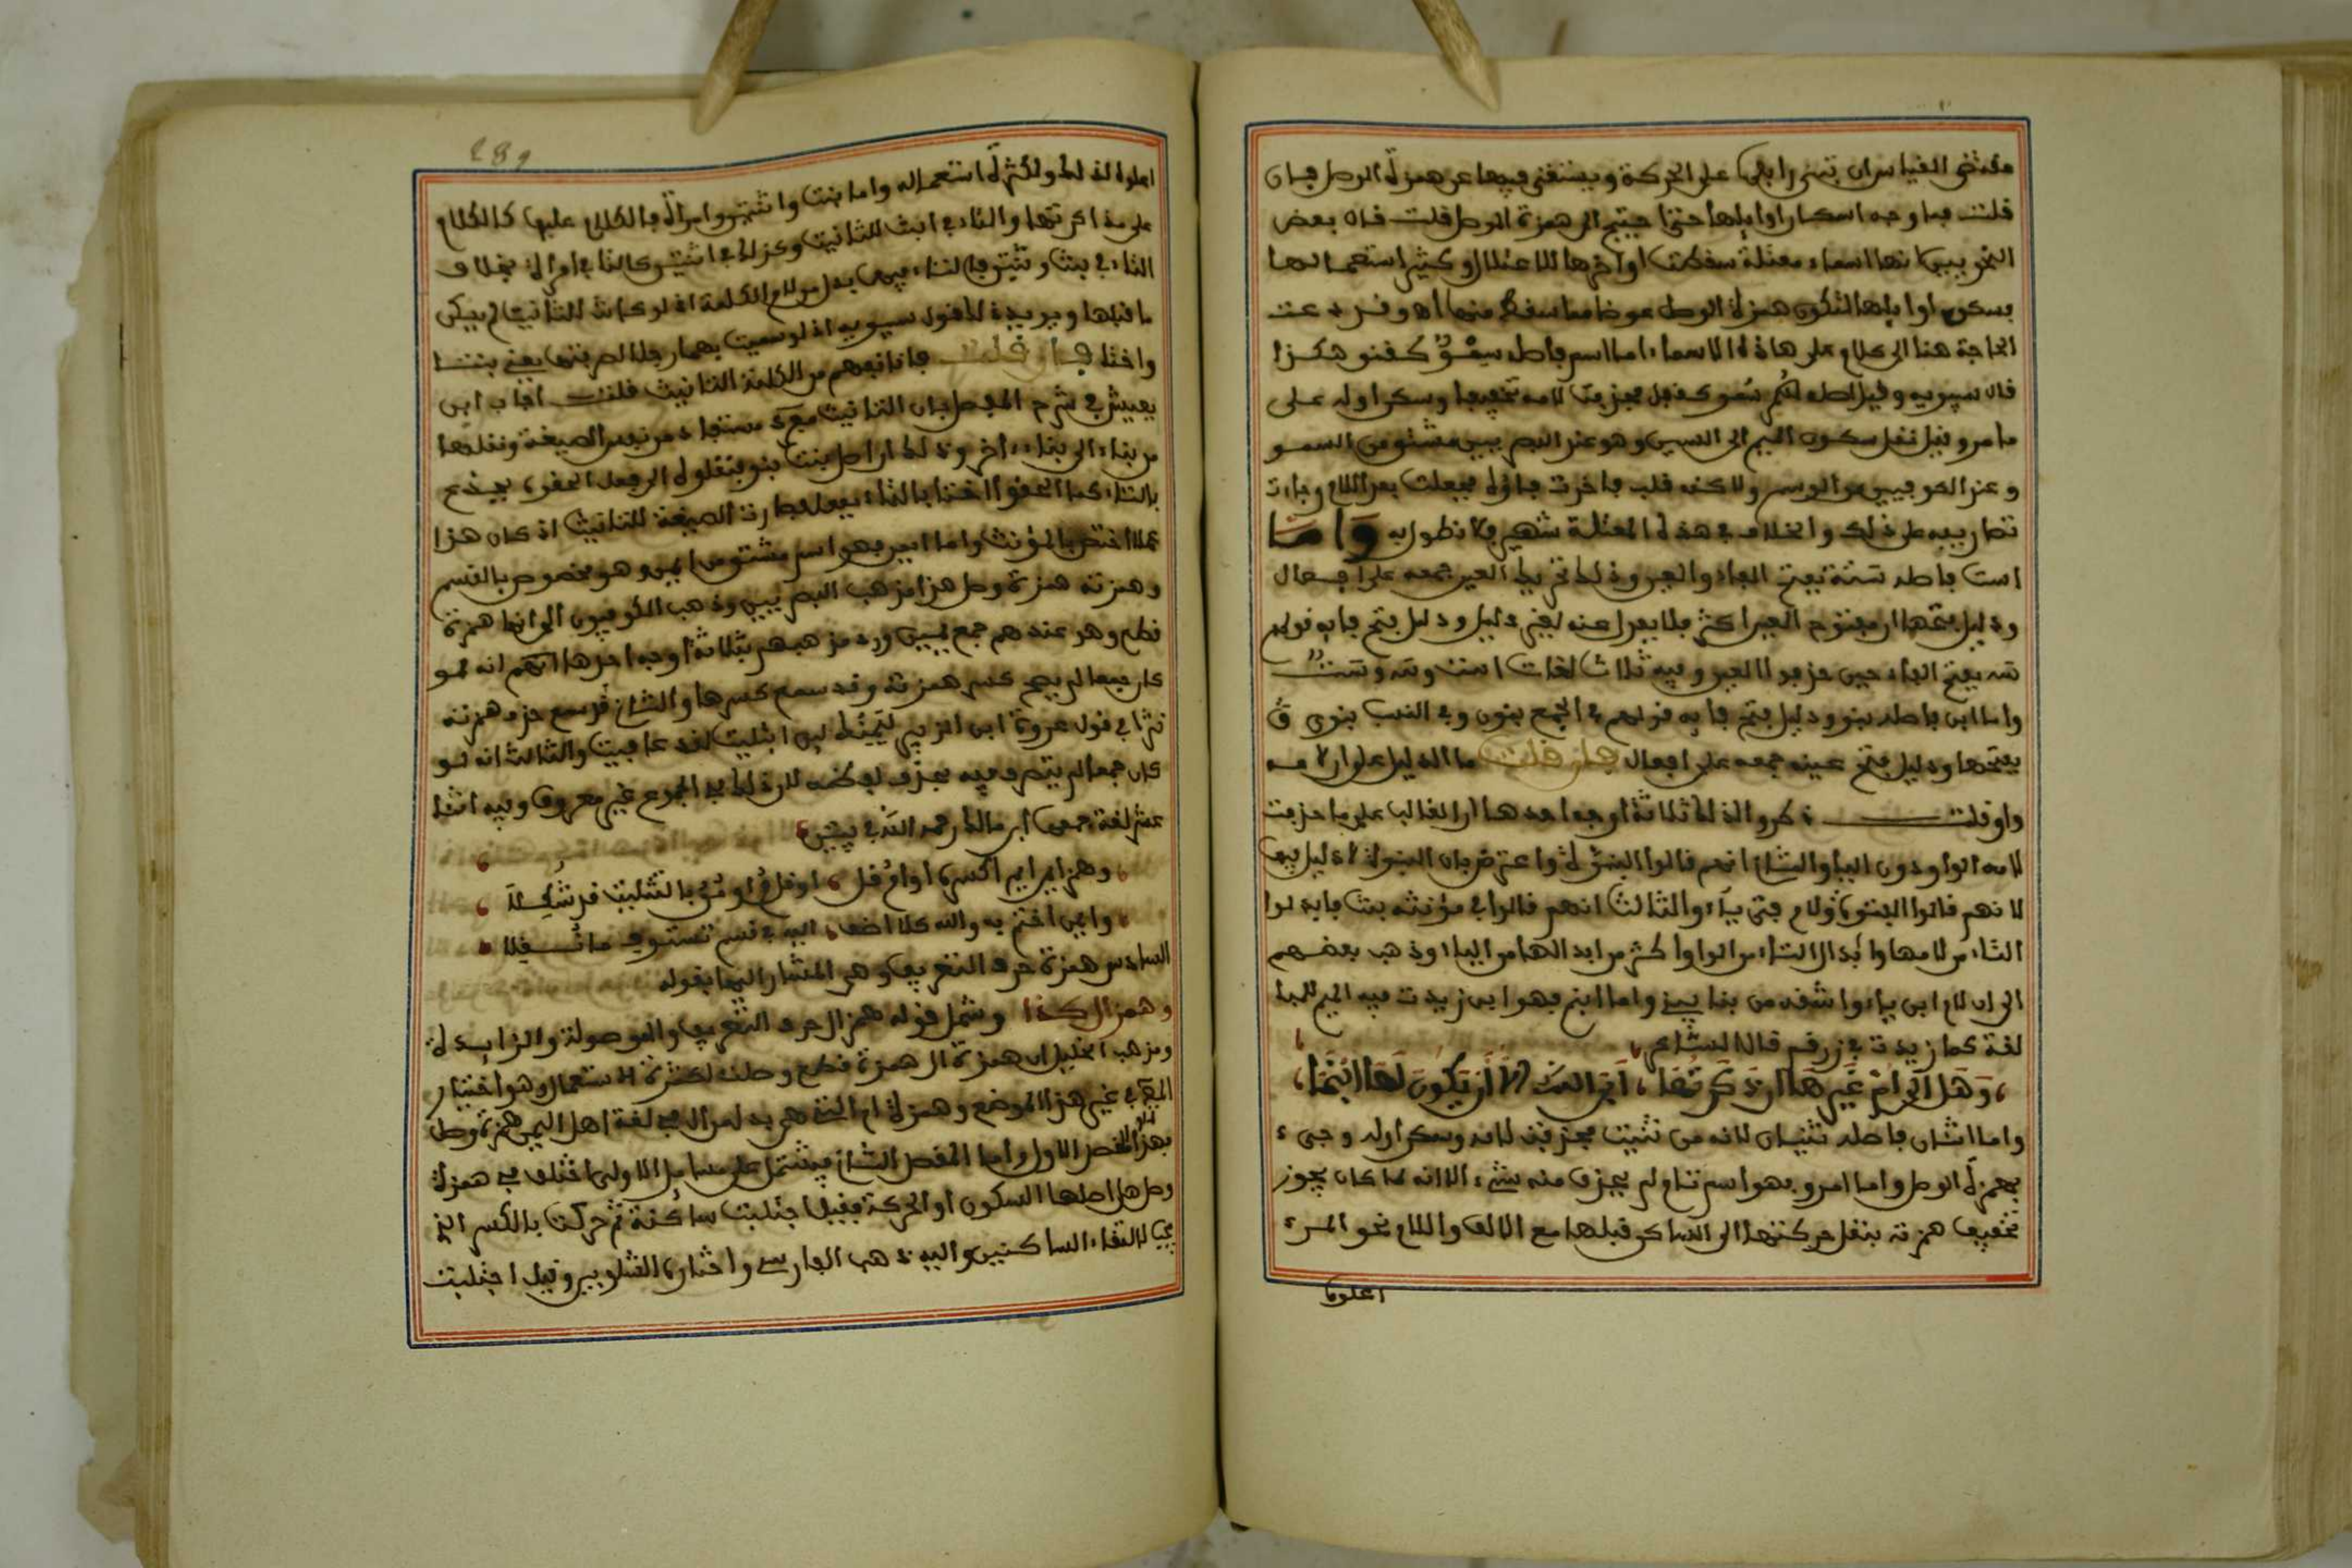 مقتضى القياس ان تبنى اوايلها على الحركة ويستغنى فيها عن همزة الوصل فان
قلت فما وجه اسكان اوايلها حتى احتيج الى همزة الوصل قلت قال بعض
النحويين انها اسماء معتلة سقطت اواخرها للاعتلال وكثر استعمالها
بسكون اوايلها لتكون همزة الوصل عوضا مما سقط منها اه وقد دعت
الحاجة هنا الى الكلام على هاذه الاسماء اما اسم فاصله سمو كقنو هكذا
قال سيبويه وقيل اصله سمو كقفل فحذفت لامه تخفيفا وسكن اوله على
ما مر وقيل نقل سكون الميم الى السين وهو عند البصريين مشتق من السمو
وعند الكوفيين من الوسم ولاكنه قلب فاخرت فاؤه فجعلت بعد اللام وجاءت
تصاريفه على ذلك والخلاف في هذه المسئلة شهير فلا نطول به واما
است فاصله سته بفتح الفاء والعين وذلك يجمعه على افعال
ودليل فتحها ان مفتوح العين اكثر فلا يعدل عنه لغير دليل ودليل فتح فايه قولهم
سه بفتح الفاء حين حذفوا العين وفيه ثلاث لغات است وسه وست
واما ابن فاصله بنو ودليل فتح فايه قولهم في الجمع بنون وفي النسب بنوي
بفتحها ودليل فتح عينه جمعه على افعال فان قلت ما الدليل على ان لامه
واو قلت ذكروا لذلك ثلاثة اوجه احدها ان الغالب على ما حذفت
لامه الواو دون الياء والثاني انهم قالوا البنوة واعترض بان البنوة لا دليل فيها
لانهم قالوا الفتوة ولام فتى ياء والثالث انهم قالوا في مؤنثه بنت فابدلوا
التاء من لامها وابدال التاء من الواو اكثر من ابدالها من الياء وذهب بعضهم
الى ان لام ابن ياء واشتقه من بنا يبني واما ابنم فهو ابن زيدت فيه الميم
لغة كما زيدت في زرقم قال الشاعر
وهل لي ام غيرها ان ذكرتها ابى الله الا ان يكون لها ابنما
واما اثنان فاصله ثنيان لانه من ثنيت فحذفت لامه وسكن اوله وجيء
بهمزة الوصل واما امرؤ فهو اسم تام لم يحذف منه شيء الا انه لما كان يجوز
تخفيف همزته بنقل حركتها الى الساكن قبلها مع الالف واللام نحو المرء
اعلوه
289
اعلوه لذلك ولكثرة استعماله واما ابنت واثنتين وامراة فالكلام عليها كالكلام
على مذاكرتها والتاء في ابنت للتانيث وكذلك في اثنتين كالتاء في امراة بخلاف
التاء في بنت وثنتين فالتاء فيهما بدل من لام الكلمة اذ لو كانت للتانيث لم يسكن
ما قبلها ويريده لذا قول سيبويه اذ لو سميت بهما رجلا لصرفتهما يعني بنتا
واختا فان قلت فانا نفهم من الكلمة التانيث قلت اجاب ابن
يعيش في شرح المفصل بان التانيث مستفاد من نفس الصيغة ونقلها
من بناء الى بناء اخر وذلك ان اصل بنت بنو فنقلوه الى فعل الحقوه بجذع
بالتاء كما الحقوا اختا بالتاء بقفل فصارت الصيغة للتانيث اذ كان هذا
عملا اختص بالمؤنث واما ايمن فهو اسم مشتق من اليمن وهو مخصوص بالقسم
وهمزته همزة وصل هذا مذهب البصريين وذهب الكوفيون الى انها همزة
قطع وهو عندهم جمع يمين ورد مذهبهم بثلاثة اوجه احدها انه لو
كان جمعا لم يجز كسر همزته وقد سمع كسرها والثاني قد سمع حذف همزته
نثرا في قول عروة ابن الزبير ليمنك لين ابتليت لقد عافيت والثالث انه لو
كان جمعا لم يتصرف فيه بحذف بعضه لان ذلك في الجموع غير معروف وفيه اثنا
عشر لغة جمعها ابن مالك رحمه الله في بيتين
وهمز ايم وايمن اكسر او ام قل او قل م او من بالتثليث قد شكلا
وايمن اختم به والله كلا اضف اليه في قسم تستوف ما نقلا
السادس همزة حرف التعريف وهو المشار اليها بقوله
وهمز ال كذا وشمل قوله همز ال حرف التعريف والموصولة والزايدة
ومذهب الخليل ان همزة ال همزة قطع وصلت لكثرة الاستعمال وهو اختيار
في غير هذا الموضع وهمزة ام التي هي بدل من ال في لغة اهل اليمن همزة وصل
فهذا الفصل الاول واما الفصل الثاني فيشتمل على مسايل الاولى اختلف في همزة
وصل هل اصلها السكون او الحركة فقيل اجتلبت ساكنة ثم حركت بالكسر الذي
يجب لالتقاء الساكنين واليه ذهب الفارسي واختاره الشلوبين وقيل اجتلبت